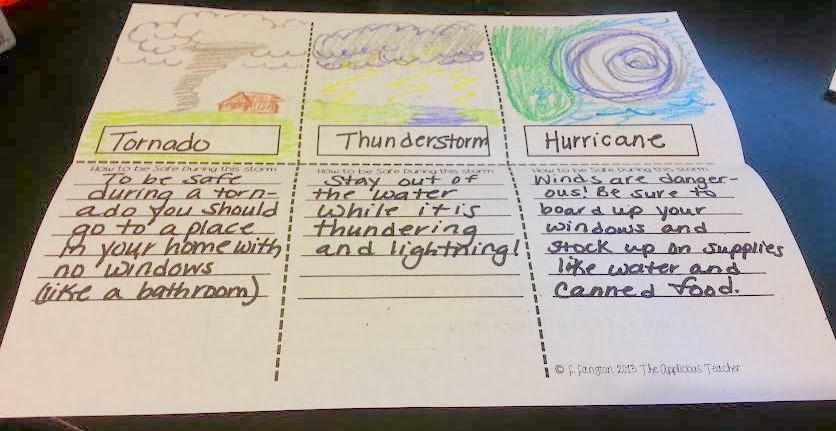 Tornado
How to be Safe During this storm
To be safe
during a torn-
ado you should
go to a place
in your home with
no windows
(like a bathroom)
Thunderstorm
How to be Safe During this storm
Stay out of
the water
while it is
thundering
and lightning!
Hurricane
How to be Safe During this storm
Winds are danger-
ous! Be sure to
board up your
windows and
stock up on supplies
like water and
canned food.
© F. Langton 2013 The Applicious Teacher